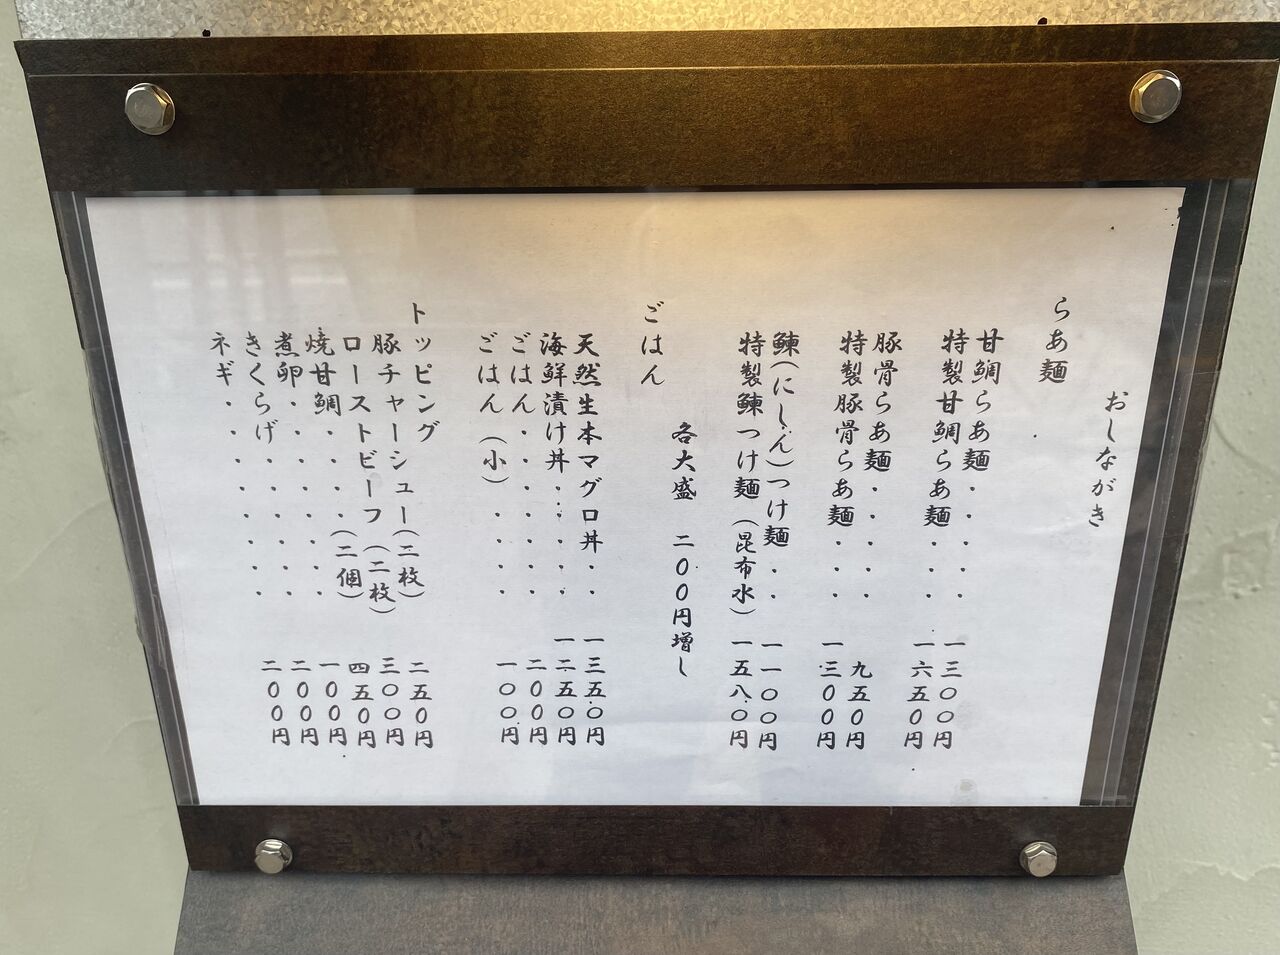 おしながき
らあ麺
甘鯛らあ麺・・・・一三〇〇円
特製甘鯛らあ麺・・・一六五〇円
豚骨らあ麺・・・・九五〇円
特製豚骨らあ麺・・・一三〇〇円
鰊(にしん)つけ麺・・一一〇〇円
特製鰊つけ麺(昆布水)一五八〇円
各大盛 二〇〇円増し
ごはん
天然生本マグロ丼・・一三五〇円
海鮮漬け丼・・・・・一二五〇円
ごはん・・・・・・・二〇〇円
ごはん(小)・・・・一〇〇円
トッピング
豚チャーシュー(三枚)二五〇円
ローストビーフ(二枚)三〇〇円
焼甘鯛・・・・(二個)四五〇円
煮卵・・・・・・・・一〇〇円
きくらげ・・・・・・二〇〇円
ネギ・・・・・・・・二〇〇円